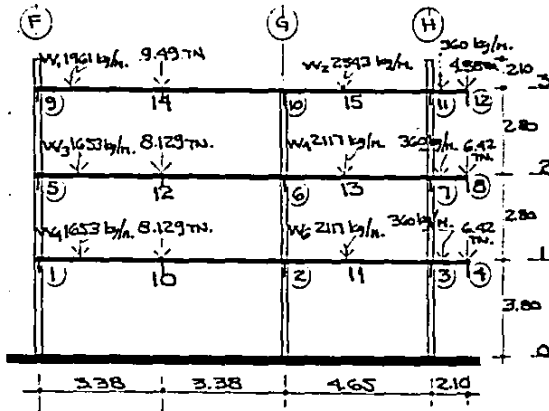 F G H
W₁ 1961 kg/m. 9.49 TN W₂ 2543 kg/m. 360 kg/m. 2.10
9 14 10 15 11 12 3
2.80
W₃ 1653 kg/m. 8.129 TN. W₄ 2117 kg/m. 360 kg/m. 6.42 TN.
5 12 6 13 7 8 2
2.80
1653 kg/m. 8.129 TN. 2117 kg/m. 360 kg/m. 6.42 TN.
1 10 2 11 3 4 1
3.80
0
3.38 3.38 4.65 2.10